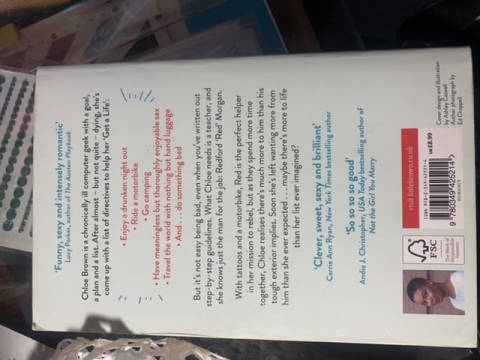 'Funny, sexy and intensely romantic'
Lucy Parker, author of The Austen Playbook
Chloe Brown is a chronically ill computer geek with a goal,
a plan and a list. After almost – but not quite – dying, she's
come up with a list of directives to help her 'Get a Life':
• Enjoy a drunken night out
• Ride a motorbike
• Go camping
• Have meaningless but thoroughly enjoyable sex
• Travel the world with nothing but hand luggage
• And . . . do something bad
But it's not easy being bad, even when you've written out
step-by-step guidelines. What Chloe needs is a teacher, and
she knows just the man for the job: Redford 'Red' Morgan.
With tattoos and a motorbike, Red is the perfect helper
in her mission to rebel, but as they spend more time
together, Chloe realises there's much more to him than his
tough exterior implies. Soon she's left wanting more from
him than she ever expected . . . maybe there's more to life
than her list ever imagined?
'Clever, sweet, sexy and brilliant'
Carrie Ann Ryan, New York Times bestselling author
'So so so so good'
Andie J. Christopher, USA Today bestselling author of
Not the Girl You Marry
visit
UK £8.99
9 780349 425214
FSC
Cover design and illustration
by Ashley Caswell
Author photograph by
Ed Chappell